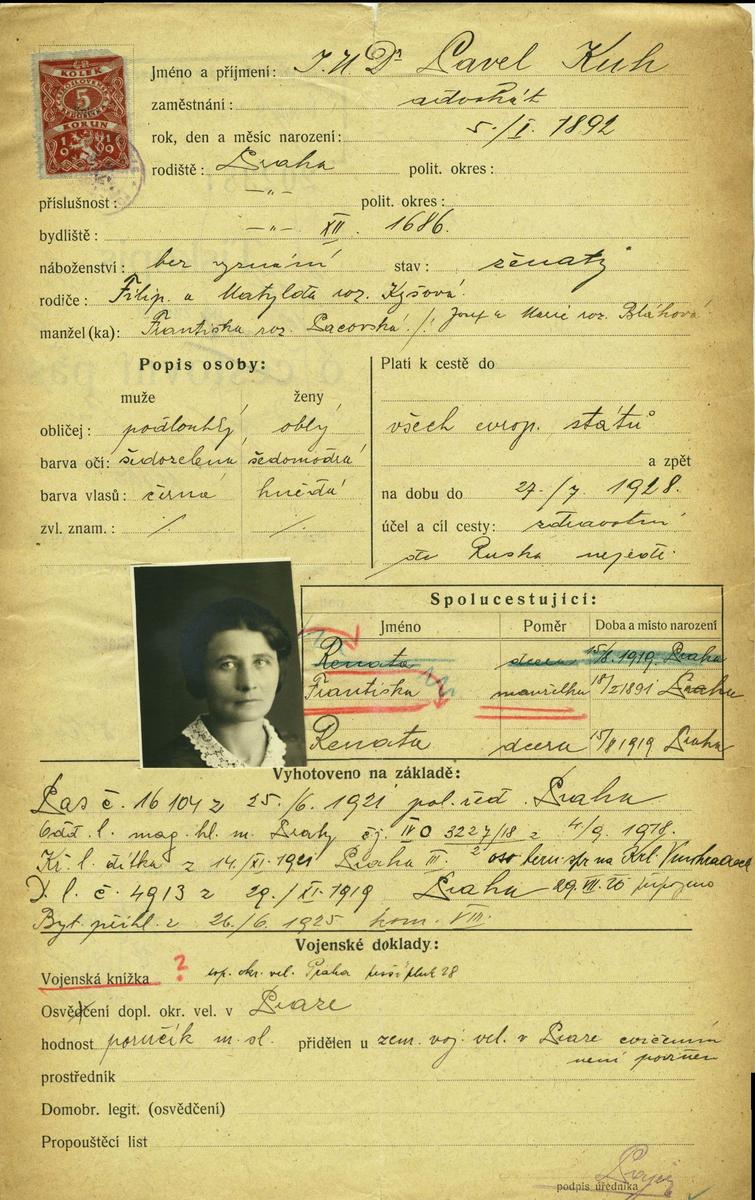 KOLEK
5
KORUN
1919
Jméno a příjmení: J.U.Dr Pavel Kuh
zaměstnání: advokát
rok, den a měsíc narození: 5./I. 1892
rodiště: Praha polit. okres:
příslušnost: -"- polit. okres:
bydliště: -"- XII. 1686.
náboženství: bez vyznání stav: ženatý
rodiče: Filip. a Matylda roz. Kyšová.
manžel(ka): Františka roz. Pacovská /: Josef a Marie roz. Bláhová
Popis osoby:
muže ženy
obličej: podlouhlý oblý
barva očí: šedozelená šedomodrá
barva vlasů: černá hnědá
zvl. znam.: / /
Platí k cestě do
všech evrop. států
a zpět
na dobu do 27./7. 1928.
účel a cíl cesty: zdravotní
do Ruska nejede.
Spolucestující:
Jméno Poměr Doba a místo narození
Renata dcera 15/8. 1919. Praha
Františka manželka 18/2 1891 Praha
Renata dcera 15/8 1919 Praha
Vyhotoveno na základě:
Pas č. 16104 z 25./6. 1921 pol. řed. Praha
l. mag. hl. m. Prahy čj. IV O 3227/18 z 4/9. 1918.
Kř. l. dítka z 14./XI. 1921 Praha III.
D. l. č. 4913 z 29./XI. 1919 Praha 29. VII. připojeno
Byt. přihl. z 26./6. 1925 kom. VIII.
Vojenské doklady:
Vojenská knížka ? dop. okr. vel. Praha pěší pluk 28
Osvědčení dopl. okr. vel. v Praze
hodnost poručík m. sl. přidělen u zem. voj. vel. v Praze cvičením
není povinen
prostředník
Domobr. legit. (osvědčení)
Propouštěcí list
podpis úředníka